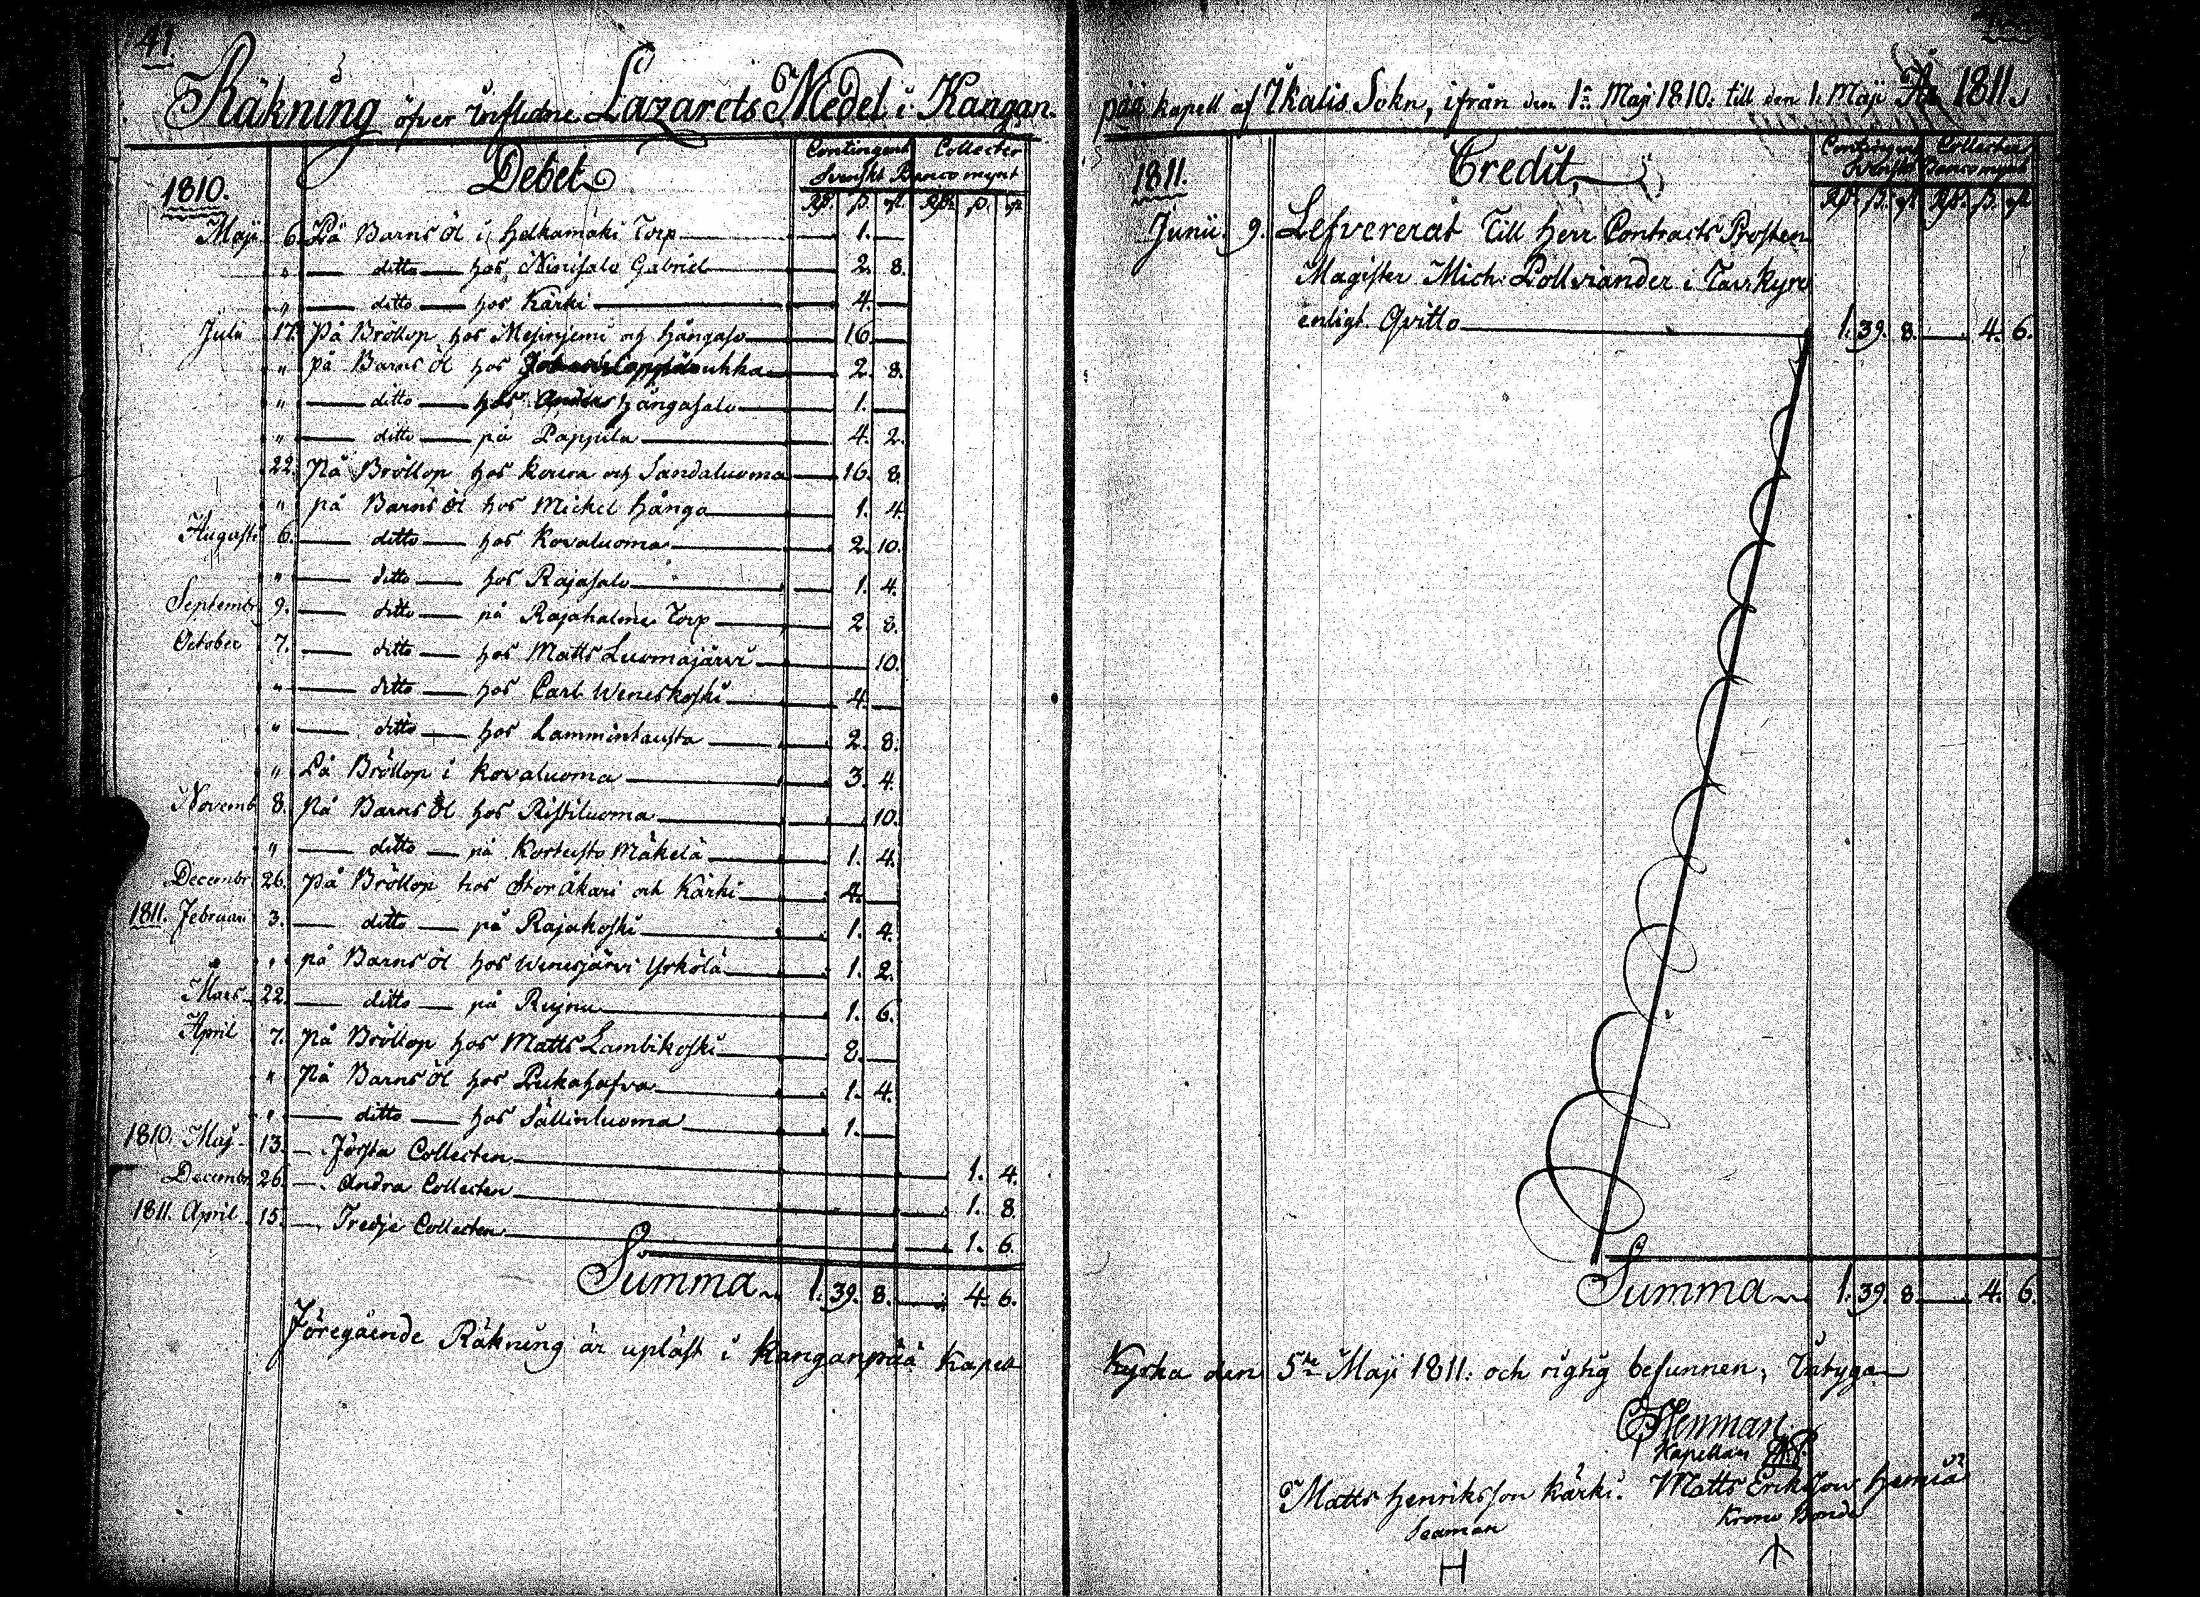 41
Räkning öfver influtne Lazarets Medel i Kangan-
1810. Debet Contingent Collecter
Svenskt Banco mynt
Maji 6. På Barns öl i Helkamäki Torp — 1. —
" — ditto — hos Niinisalo Gabriel — 2. 8.
" — ditto — hos Kärki — 4. —
Julii 17. På Bröllop hos och Hångaso — 16. —
" på Barns öl hos — 2. 8.
" — ditto — hos Hångasalo — 1. —
" — ditto — på Pappila — 4. 2.
22. På Bröllop hos Koura och Sandaluoma — 16. 8.
" på Barns öl hos Michel Hånga — 1. 4.
Augusti 6. — ditto — hos Kovaluoma — 2. 10.
" — ditto — hos Rajasalo — 1. 4.
Septembr 9. — ditto — på Rajahalme Torp — 2. 8.
October 7. — ditto — hos Matts Luomajärvi — 10.
" — ditto — hos Carl Weneskoski — 4. —
" — ditto — hos Lammintausta — 2. 8.
" På Bröllop i Kovaluoma — 3. 4.
Novemb 8. På Barns öl hos Ristiluoma — 10.
" — ditto — på Kortesto Mäkelä — 1. 4.
Decembr 26. på Bröllop hos Storåkari och Kärki — 4. —
1811. Februari 3. — ditto — på Rajakoski — 1. 4.
" " på Barns öl hos Wenesjärvi Yrkölä — 1. 2.
Mars 22. — ditto — på Rujnu — 1. 6.
April 7. på Bröllop hos Matts Lambikoski — 2. —
" På Barns öl hos Pukahafva — 1. 4.
" — ditto — hos Sällinluoma — 1. —
1810. Maj 13. — Första Collecten — 1. 4.
Decembr 26. — Andra Collecten — 1. 8.
1811. April 15. — Tredje Collecten — 1. 6.
Summa 1. 39. 8. — 4. 6.
Föregående Räkning är upläst i Kanganpää Kapell
pää kapell af Ikalis Sokn, ifrån den 1: Maji 1810: till den 1: Maji 1811.
1811. Credit, Contingent Collecter
Svenskt Banco mynt
Junii 9. Lefvererat till Herr Contracts Prosten
Magister Mich: Pollviander i Tavkyro
enligt Qvitto — 1. 39. 8. — 4. 6.
Summa 1. 39. 8. — 4. 6.
Kyrka den 5te Maji 1811: och rigtig befunnen, Intyga
Kapellan
Matts Henriksson Kärki. Matts Eriksson
Seaman Krono Bonde